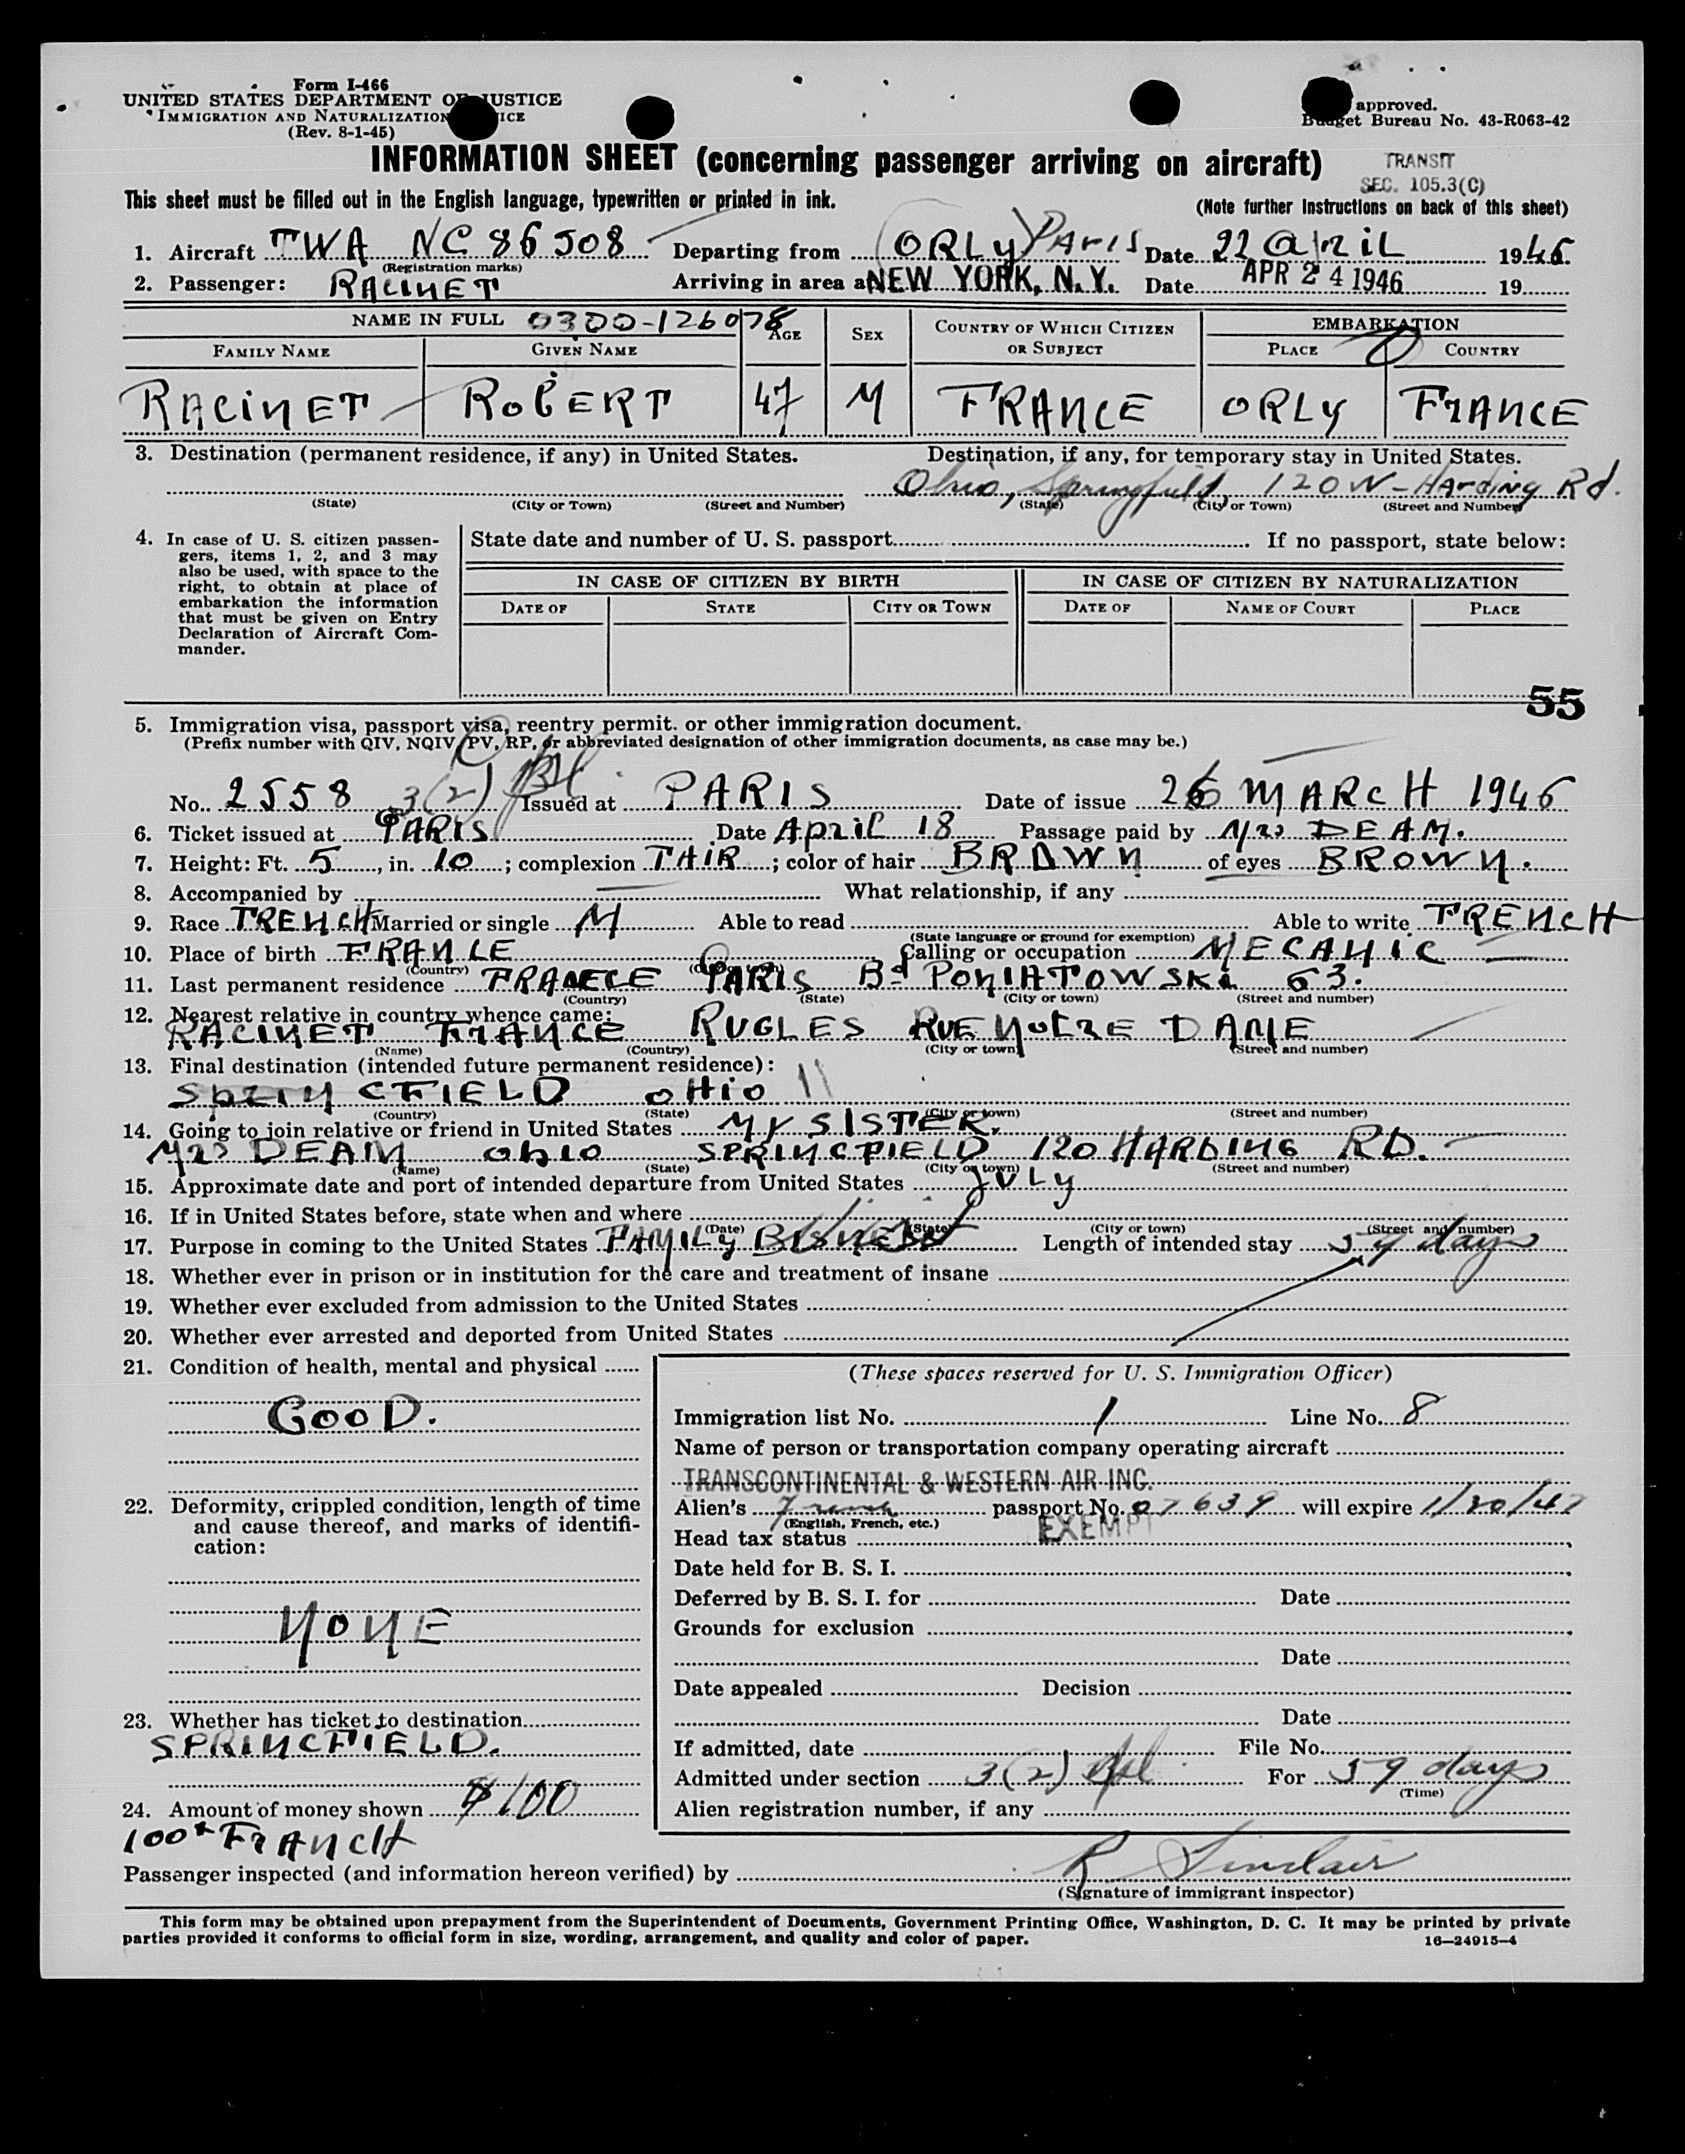 Form I-466
UNITED STATES DEPARTMENT OF JUSTICE
IMMIGRATION AND NATURALIZATION SERVICE
(Rev. 8-1-45)
approved.
Budget Bureau No. 43-R063-42
INFORMATION SHEET (concerning passenger arriving on aircraft)
TRANSIT
SEC. 105.3(C)
This sheet must be filled out in the English language, typewritten or printed in ink.
(Note further instructions on back of this sheet)
1. Aircraft TWA NC 86508 Departing from ORLY PARIS Date 22 April 1946.
(Registration marks)
2. Passenger: RACINET Arriving in area at NEW YORK, N.Y. Date APR 24 1946 19
NAME IN FULL 0300-126078 AGE SEX COUNTRY OF WHICH CITIZEN OR SUBJECT EMBARKATION
FAMILY NAME GIVEN NAME PLACE COUNTRY
RACINET ROBERT 47 M FRANCE ORLY FRANCE
3. Destination (permanent residence, if any) in United States. Destination, if any, for temporary stay in United States.
Ohio, Springfield 120 W-Harding Rd.
(State) (City or Town) (Street and Number) (State) (City or Town) (Street and Number)
4. In case of U. S. citizen passengers, items 1, 2, and 3 may also be used, with space to the right, to obtain at place of embarkation the information that must be given on Entry Declaration of Aircraft Commander.
State date and number of U. S. passport If no passport, state below:
IN CASE OF CITIZEN BY BIRTH IN CASE OF CITIZEN BY NATURALIZATION
DATE OF STATE CITY OR TOWN DATE OF NAME OF COURT PLACE
55
5. Immigration visa, passport visa, reentry permit. or other immigration document.
(Prefix number with QIV, NQIV, PV, RP, or abbreviated designation of other immigration documents, as case may be.)
No. 2558 3(2) Issued at PARIS Date of issue 26 MARCH 1946
6. Ticket issued at PARIS Date April 18 Passage paid by Mrs DEAM.
7. Height: Ft. 5, in. 10; complexion FAIR; color of hair BROWN of eyes BROWN.
8. Accompanied by What relationship, if any
9. Race FRENCH Married or single M Able to read Able to write FRENCH
(State language or ground for exemption)
10. Place of birth FRANCE Calling or occupation MECANIC
(Country)
11. Last permanent residence FRANCE PARIS Bd PONIATOWSKI 63.
(Country) (State) (City or town) (Street and number)
12. Nearest relative in country whence came:
RACINET FRANCE RUGLES RUE NOTRE DAME
(Name) (Country) (City or town) (Street and number)
13. Final destination (intended future permanent residence):
SPRINCFIELD OHIO
(Country) (State) (City or town) (Street and number)
14. Going to join relative or friend in United States MY SISTER.
Mrs DEAM OHIO SPRINCFIELD 120 HARDING RD.
(Name) (State) (City or town) (Street and number)
15. Approximate date and port of intended departure from United States JULY
16. If in United States before, state when and where
(Date) (State) (City or town) (Street and number)
17. Purpose in coming to the United States FAMILY BISNESS Length of intended stay 59 days
18. Whether ever in prison or in institution for the care and treatment of insane
19. Whether ever excluded from admission to the United States
20. Whether ever arrested and deported from United States
21. Condition of health, mental and physical
GOOD.
22. Deformity, crippled condition, length of time and cause thereof, and marks of identification:
NONE
23. Whether has ticket to destination
SPRINCFIELD.
24. Amount of money shown $100
100 FRANCH
(These spaces reserved for U. S. Immigration Officer)
Immigration list No. 1 Line No. 8
Name of person or transportation company operating aircraft
TRANSCONTINENTAL & WESTERN AIR INC.
Alien's French passport No. 07639 will expire 1/20/47
(English, French, etc.)
Head tax status EXEMPT
Date held for B. S. I.
Deferred by B. S. I. for Date
Grounds for exclusion
Date
Date appealed Decision
Date
If admitted, date File No.
Admitted under section 3(2) For 59 days
(Time)
Alien registration number, if any
Passenger inspected (and information hereon verified) by R Sinclair
(Signature of immigrant inspector)
This form may be obtained upon prepayment from the Superintendent of Documents, Government Printing Office, Washington, D. C. It may be printed by private
parties provided it conforms to official form in size, wording, arrangement, and quality and color of paper.
16—24915-4